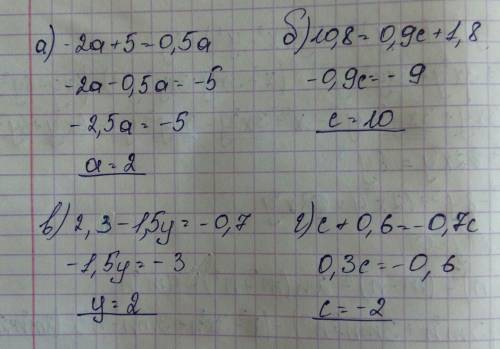 а) -2a+5=0,5a
-2a-0,5a=-5
-2,5a=-5
a=2
б) 10,8=0,9c+1,8
-0,9c=-9
c=10
в) 2,3-1,5y=-0,7
-1,5y=-3
y=2
г) c+0,6=-0,7c
0,3c=-0,6
c=-2